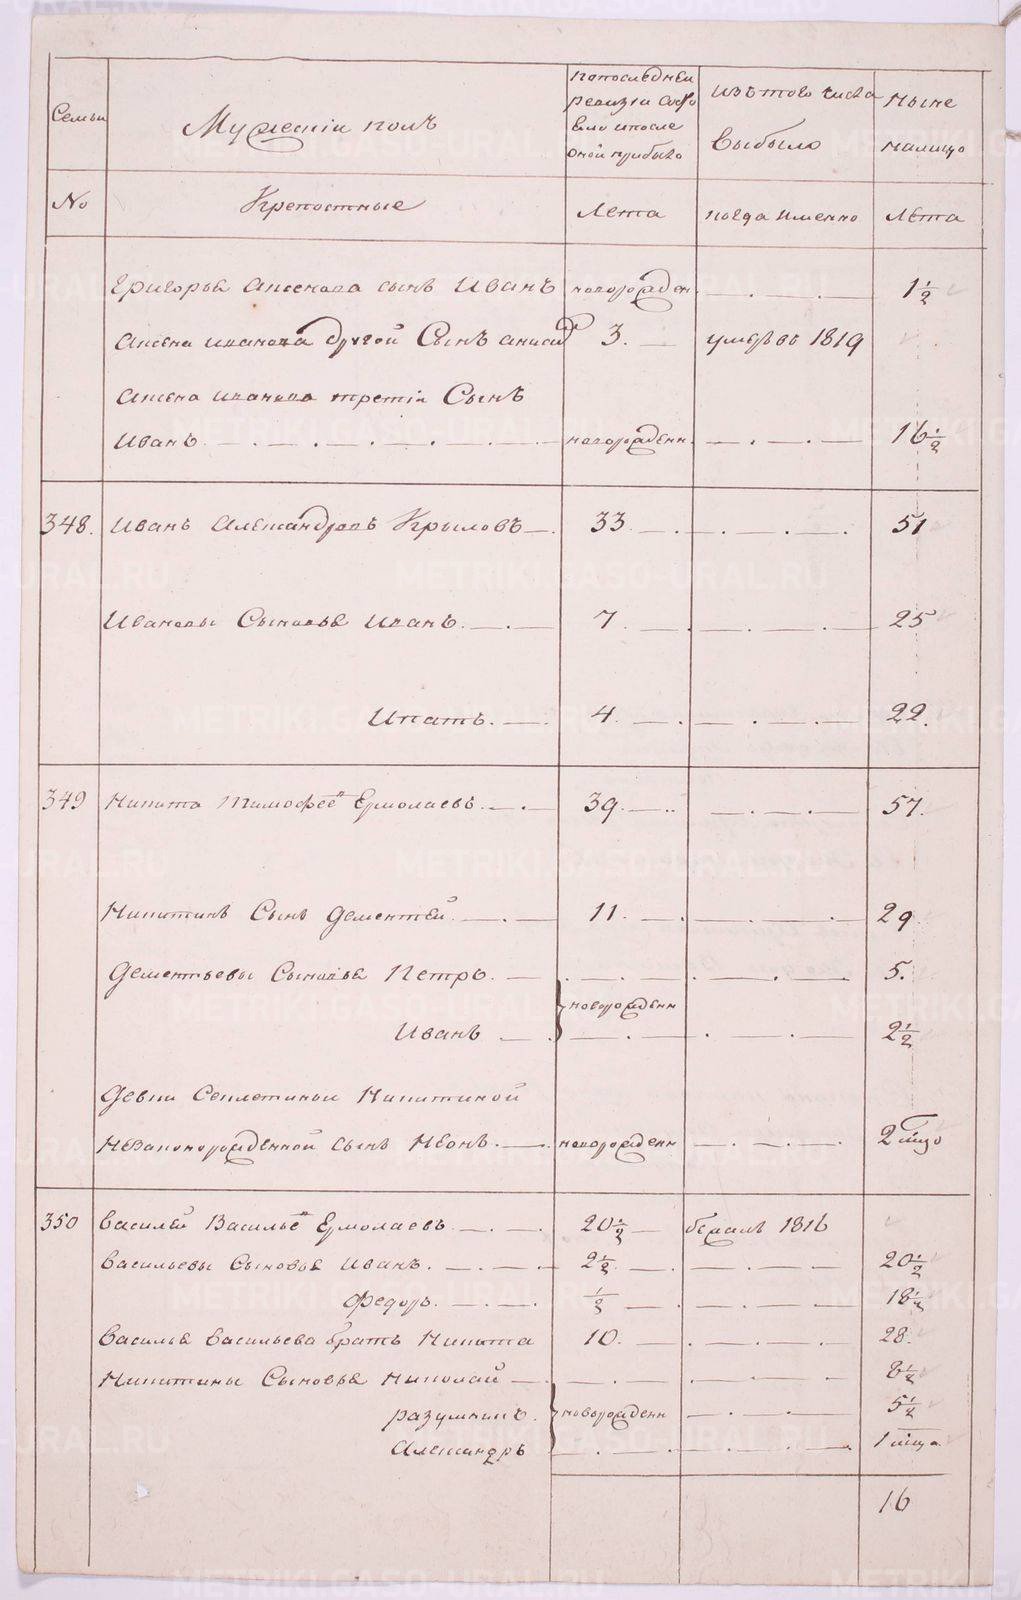 Семьи
Мужескiй полъ
Попоследней
ревизiи состо
яло ипосле
оной прибыло
Изътого числа
выбыло
Ныне
налицо
No
Крепостные
Лета
когда именно
Лета
Григорья Аксенова сынъ Иванъ новорожден 1 1/2
Аксена иванова другой Сынъ 3. умеръ въ 1819
Аксена иванова третiй Сынъ
Иванъ новорожденн 16 1/2
348. Иванъ Александровъ Крыловъ 33 51
Ивановы Сыновья Иванъ. 7. 25
Ипатъ. 4. 22.
349 Никита Тимофее Ермолаевъ 39. 57.
Никитинъ Сынъ Дементей 11. 29
Дементьевы Сыновья Петръ. 5.
новорожденн
Иванъ 2 1/2
Девки Секлетиньи Никитиной
Незаконорожденной сынъ новорожденн 2
350 Василей Василье Ермолаевъ 20 1/2 бежалъ 1816
Васильевы Сыновья Иванъ. 2 1/2 20 1/2
Федоръ. 1/2 18 1/2
Василья Васильева братъ Никита 10. 28.
Никитины Сыновья Николай 8 1/2
разумникъ. новорожденн 5 1/2
Александръ 1
16
METRIKI.GASO-URAL.RU